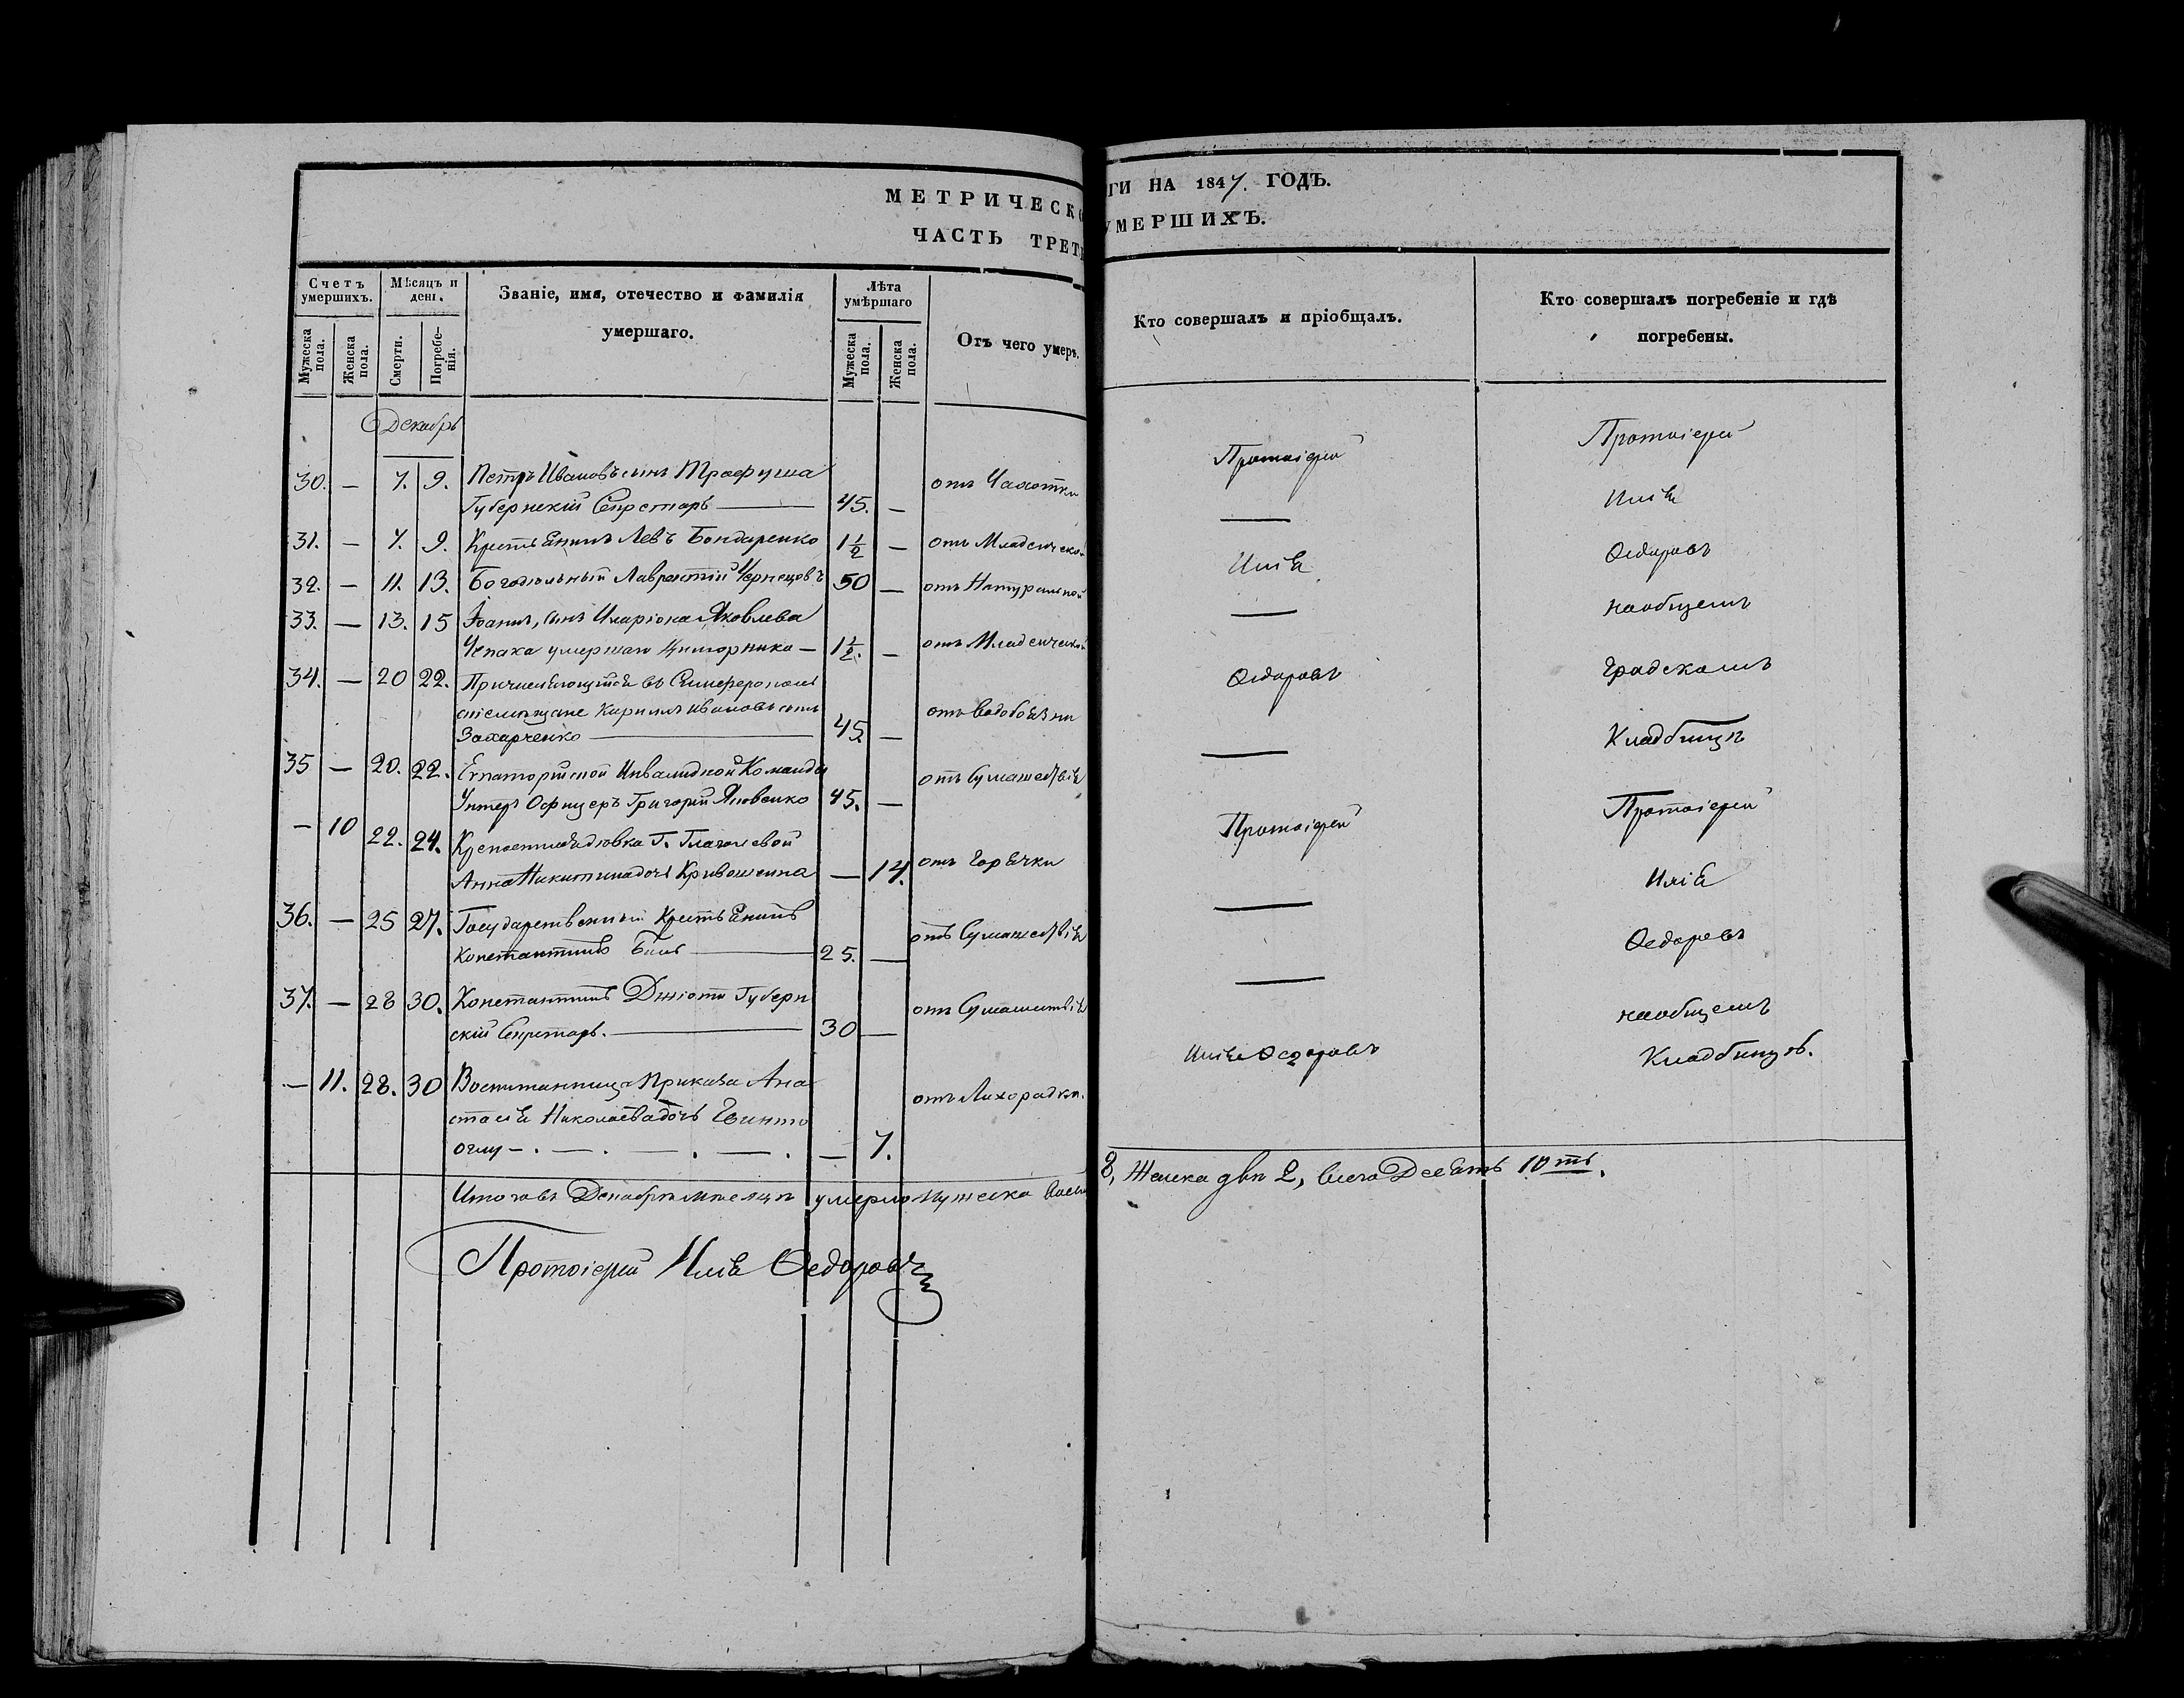 МЕТРИЧЕСКО
ЧАСТЬ ТРЕТ
Счетъ умершихъ.
Мѣсяцъ и день.
Званіе, имя, отечество и фамилія
умершаго.
Лѣта умѣршаго
Мужеска пола.
Женска пола.
Смерти.
Погребенія.
Мужеска пола.
Женска пола.
Отъ чего умеръ.
Декабрь
30. — 7. 9. Петръ Ивановъ сынъ Трофуша
Губернскій Секретарь — 45. — отъ Чахотки
31. — 7. 9. Крестьянинъ Левъ Бондаренко 1½ — отъ Младенческой
32. — 11. 13. Богодѣльный Лаврентій Чернецовъ 50 — отъ Натуральной
33. — 13. 15 Іоаннъ, сынъ Иларіона Яковлева
Чепака умершаго — 1½. — отъ Младенческой
34. — 20 22. Причисляющійся въ Симферополь
Кириллъ Ивановъ сынъ
Захарченко — 45. — отъ водобоязни
35 — 20. 22. Евпаторійской Инвалидной Команды
Унтеръ Офицеръ Григорій Яковенко 45. — отъ Сумашедствія
— 10 22. 24. Г. Глаголевой
Анна Никитина дочь Кривошеина — 14. отъ Горячки
36. — 25 27. Государственный Крестьянинъ
Константинъ — 25. — отъ Сумашедствія
37. — 28 30. Константинъ Губерн
скій Секретарь. — 30 — отъ Сумашествія
— 11. 28. 30 Воспитанница Приказа Ана
стасія Николаева дочь
оглу — . — . — . — . — 7. отъ Лихорадки.
Итого въ Декабрѣ мѣсяцѣ умерло мужеска восемь
Протоіерей Илія Ѳедоровъ
ГИ НА 1847. ГОДЪ.
УМЕРШИХЪ.
Кто совершалъ и пріобщалъ.
Кто совершалъ погребеніе и гдѣ
погребены.
Протоіерей
—
Илія
—
Ѳедоровъ
—
Протоіерей
—
—
Илія Ѳедоровъ
Протоіерей
Илія
Ѳедоровъ
на общемъ
Градскомъ
Кладбищѣ
Протоіерей
Илія
Ѳедоровъ
на общемъ
Кладбищѣ.
8, Женска двѣ 2, всего Десять 10ть.